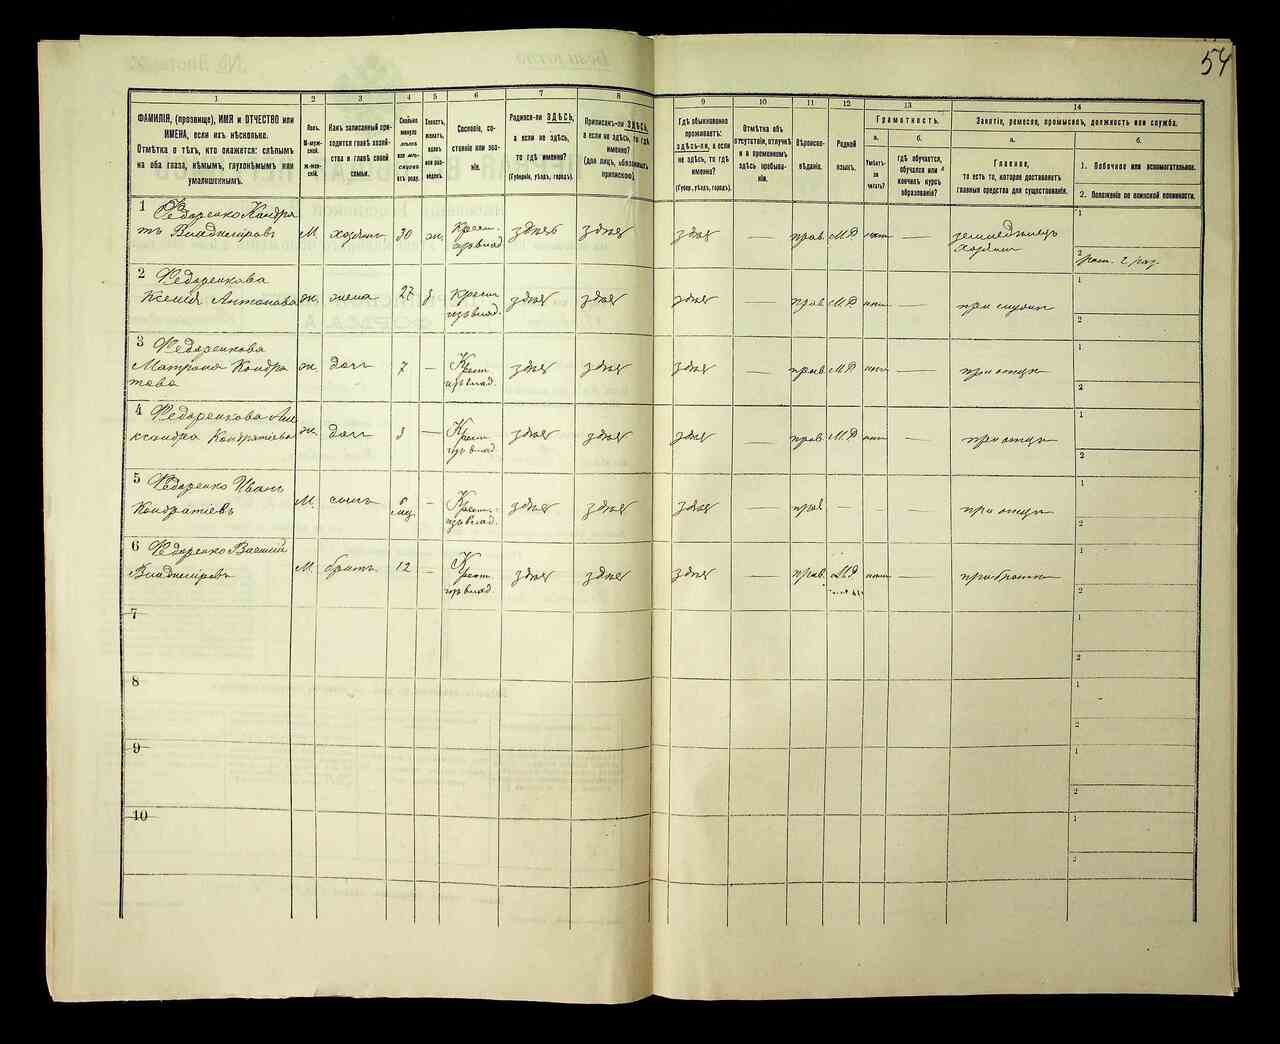 54
1 2 3 4 5 6 7 8 9 10 11 12 13 14
ФАМИЛІЯ, (прозвище), ИМЯ и ОТЧЕСТВО или
ИМЕНА, если ихъ нѣсколько.
Отмѣтка о тѣхъ, кто окажется: слѣпымъ
на оба глаза, нѣмымъ, глухонѣмымъ или
умалишеннымъ.
Полъ.
М-муж-
ской.
Ж-жен-
скій.
Какъ записанный при-
ходится главѣ хозяй-
ства и главѣ своей
семьи.
Сколько
минуло
лѣтъ
или мѣ-
сяцевъ
отъ роду.
Холостъ,
женатъ,
вдовъ
или раз-
веденъ.
Сословіе, со-
стояніе или зва-
ніе.
Родился-ли ЗДѢСЬ,
а если не здѣсь,
то гдѣ именно?
(Губернія, уѣздъ, городъ).
Приписанъ-ли ЗДѢСЬ,
а если не здѣсь, то гдѣ
именно?
(для лицъ, обязанныхъ
припискою).
Гдѣ обыкновенно
проживаетъ:
здѣсь-ли, а если
не здѣсь, то гдѣ
именно?
(Губер., уѣздъ, городъ).
Отмѣтка объ
отсутствіи, отлучкѣ
и о временномъ
здѣсь пребыва-
ніи.
Вѣроиспо-
вѣданіе.
Родной
языкъ.
Грамотность.
а.
Умѣетъ-
ли
читать?
б.
гдѣ обучается,
обучался или
кончилъ курсъ
образованія?
Занятіе, ремесло, промыселъ, должность или служба.
а.
Главное,
то есть то, которое доставляетъ
главныя средства для существованія.
б.
1. Побочное или вспомогательное.
2. Положеніе по воинской повинности.
1 Федоренко Кондра
тъ Владиміровъ М хозяинъ 30 ж. Крест. изъ влад. здѣсь здѣсь здѣсь — прав. М.Р нѣтъ — земледѣлецъ хозяинъ 1
2
2 Федоренкова
Ксенія Антонова ж. жена 27 з крест. изъ влад. здѣсь здѣсь здѣсь — прав М.Р нѣтъ — при мужѣ 1
2
3 Федоренкова
Матрона Кондра
това ж. дочь 7 — Крест. изъ влад. здѣсь здѣсь здѣсь — прав. М.Р нѣтъ — при отцѣ 1
2
4 Федоренкова Але
ксандра Кондратіева ж. дочь 3 — Крест. изъ влад. здѣсь здѣсь здѣсь — прав. М.Р нѣтъ — при отцѣ 1
2
5 Федоренко Иванъ
Кондратіевъ М. сынъ 6 мѣс. — Крест. изъ влад. здѣсь здѣсь здѣсь — прав при отцѣ 1
2
6 Федоренко Василій
Владиміровъ М. братъ 12 — Крест. изъ влад. здѣсь здѣсь здѣсь — прав. М.Р нѣтъ — при братѣ 1
2
7 1
2
8 1
2
9 1
2
10 1
2